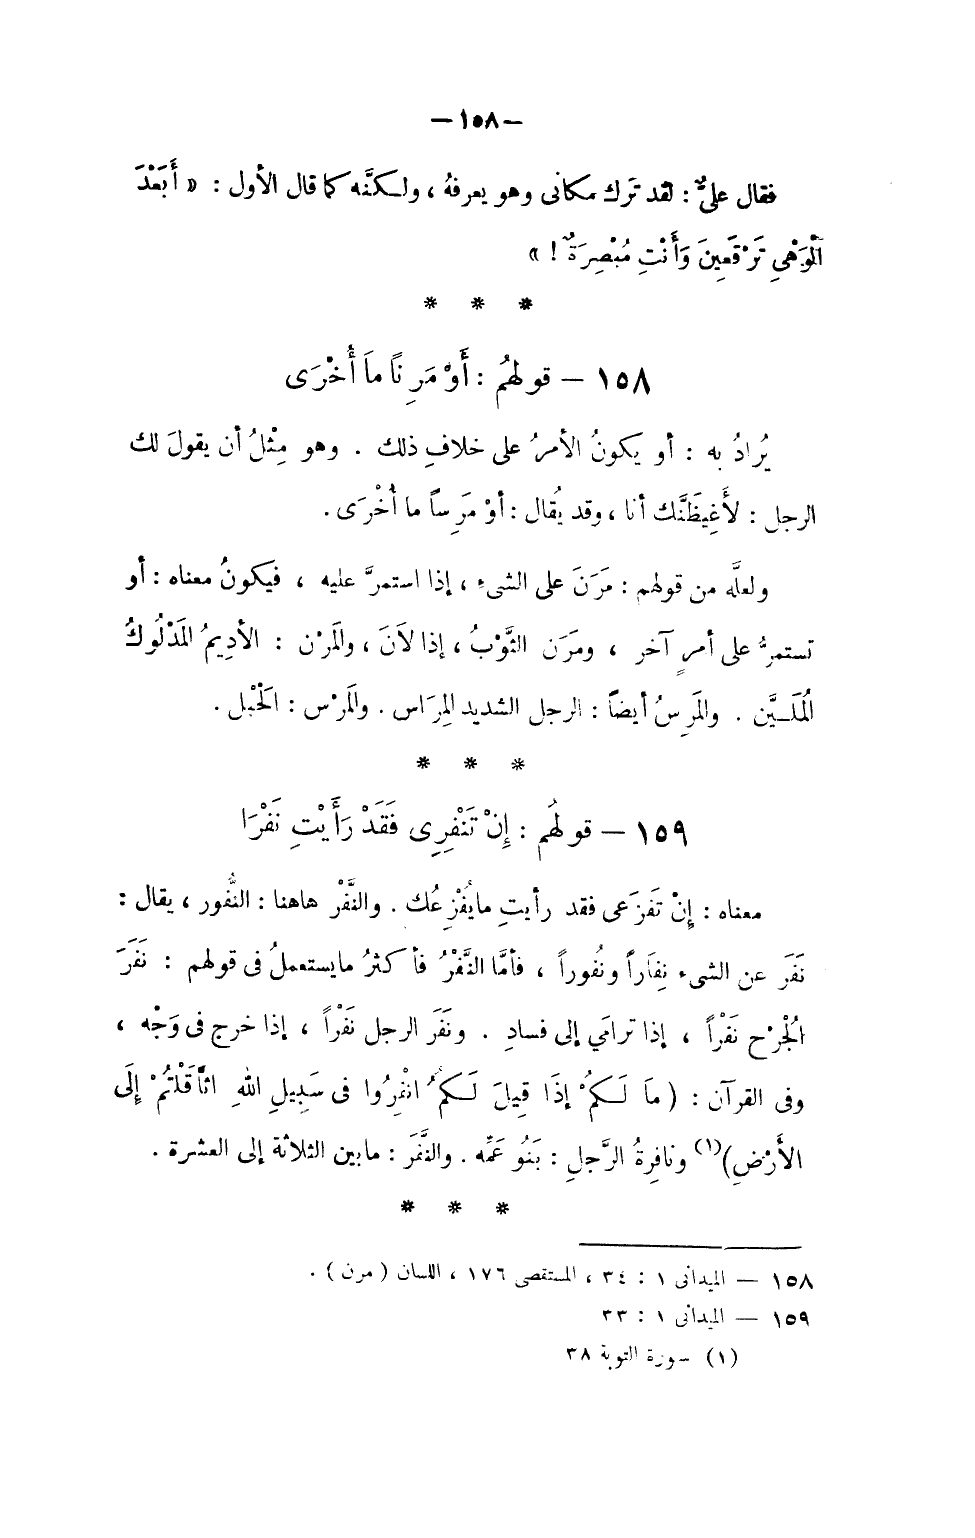 — ١٥٨ —
فقال علىٌّ : لقد تَرك مكانى وهو يعرفهُ ، ولكنَّه كما قال الأول : « أَبَعْدَ
الْوَهْىِ تَرْقَعِينَ وَأَنْتِ مُبْصِرَةٌ ! »
* * *
١٥٨ — قولهُم : أَوْ مَرِنًا مَا أُخْرَى
يُرادُ به : أو يكونُ الأمرُ على خلافِ ذلك . وهو مِثْلُ أن يقولَ لك
الرجل : لأَغِيظَنَّك أنا ، وقد يُقال : أوْ مَرِسًا ما أُخْرَى .
ولعلَّه من قولهم : مَرَنَ على الشىء ، إذا استمرَّ عليه ، فيكونُ معناه : أو
تستمرُّ على أمرٍ آخر ، ومَرَن الثَّوْبُ ، إذا لاَنَ ، والمَرْن : الأدِيمُ المَدْلُوكُ
المُلَيَّن . والمَرِسُ أيضاً : الرجل الشديد المِرَاس . والمَرْس : الحَبْل .
* * *
١٥٩ — قولهُم : إِنْ تَنْفِرِى فَقَدْ رَأَيْتِ نَفْرَا
معناه : إِنْ تَفزَعى فقد رأيتِ مايُفْزِعُك . والنَّفْر هاهنا : النُّفور ، يقال :
نَفَرَ عن الشىء نِفَاراً ونُفوراً ، فأمَّا النَّفْرُ فأكثرُ مايستعملُ فى قولهم : نَفَرَ
الجُرْح نَفْراً ، إذا ترامَي إلى فسادِ . ونَفَرَ الرجل نَفْراً ، إذا خرج فى وَجْه ،
وفى القرآن : ( مَا لَكُمْ إذَا قِيلَ لَكُمُ انْفِرُوا فى سَبِيلِ اللهِ اثَّاقَلْتُمْ إلَى
الأَرْضِ )(١) ونافِرةُ الرَّجلِ : بَنُو عَمِّه . والنَّفَرَ : مابين الثلاثة إلى العشرة .
* * *
١٥٨ — الميدانى ١ : ٣٤ ، المستقصى ١٧٦ ، اللسان ( مرن ) .
١٥٩ — الميدانى ١ : ٣٣
(١) سورة التوبة ٣٨